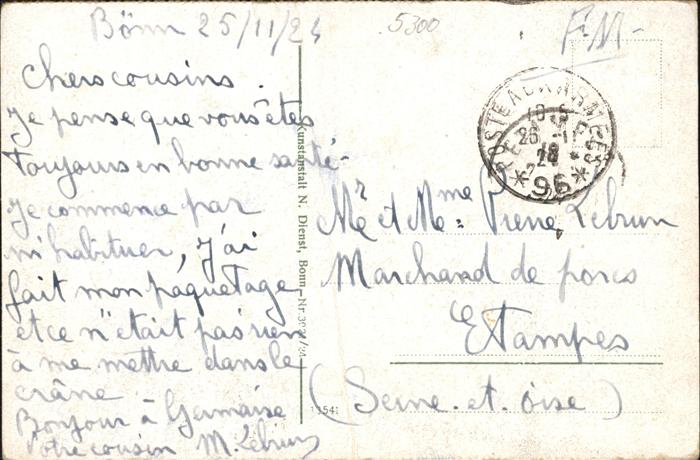 Bönn 25/11/24
5300
F.M-
Chers cousins.
Je pense que vous êtes
toujours en bonne santé-
Je commence par
m'habituer, j'ai
fait mon paquetage
et ce n'était pas rien
à me mettre dans le
crâne
Bonjour à Germaine
Votre cousin M. Lebrun
Kunstanstalt N. Dienst, Bonn
POSTE AUX ARMEES
*96*
Mr et Mme: Pierre Lebrun
Marchand de porcs
Etampes
(Seine-et-oise)